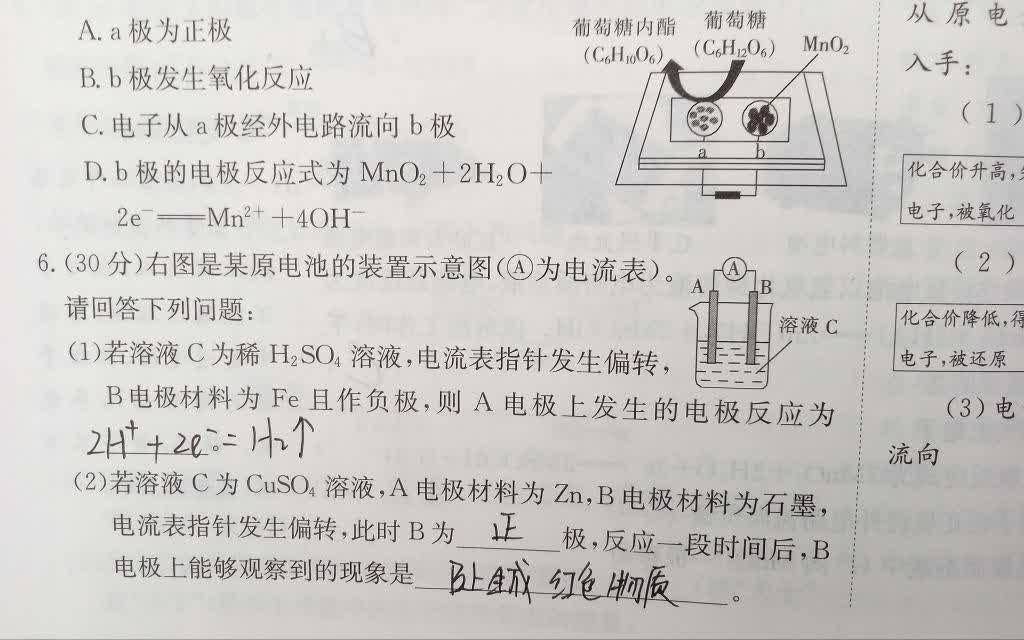 A. a 极为正极
B. b 极发生氧化反应
C. 电子从 a 极经外电路流向 b 极
D. b 极的电极反应式为 MnO₂+2H₂O+
2e⁻══Mn²⁺+4OH⁻
葡萄糖内酯 葡萄糖
(C₆H₁₀O₆) (C₆H₁₂O₆) MnO₂
a b
6. (30 分)右图是某原电池的装置示意图(Ⓐ为电流表)。
请回答下列问题:
A Ⓐ B
溶液 C
(1)若溶液 C 为稀 H₂SO₄ 溶液,电流表指针发生偏转,
B 电极材料为 Fe 且作负极,则 A 电极上发生的电极反应为
2H⁺+2e⁻=H₂↑
(2)若溶液 C 为 CuSO₄ 溶液,A 电极材料为 Zn,B 电极材料为石墨,
电流表指针发生偏转,此时 B 为 正 极,反应一段时间后,B
电极上能够观察到的现象是 B上生成 红色物质 。
从 原 电
入手:
(1)
化合价升高,
电子,被氧化
(2)
化合价降低,得
电子,被还原
(3)电
流向